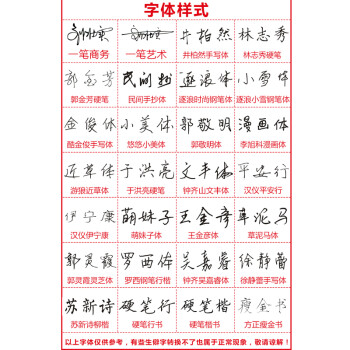 字体样式
一笔商务 一笔艺术 井柏然 林志秀
一笔商务 一笔艺术 井柏然手写体 林志秀硬笔
郭金芳 民间抄 逐浪体 小雪体
郭金芳硬笔 民间手抄体 逐浪时尚钢笔体 逐浪小雪钢笔体
金俊体 小美体 郭敬明 漫画体
酷金俊手写体 悠悠小美体 郭敬明体 李旭科漫画体
近草体 于洪亮 文丰体 平安行
游狼近草体 于洪亮硬笔 钟齐山文丰体 汉仪平安行
伊宁康 萌妹子 王金彦 草泥马
汉仪伊宁康 萌妹子体 王金彦体 草泥马体
郭灵霞 罗西体 吴嘉睿 徐静蕾
郭灵霞灵芝体 罗西钢笔行楷 钟齐吴嘉睿体 徐静蕾手写体
苏新诗 硬笔行 硬笔楷 瘦金书
苏新诗柳楷 硬笔行书 硬笔楷书 方正瘦金书
以上字体仅供参考，有些生僻字转换不了也属于正常现象，敬请谅解！